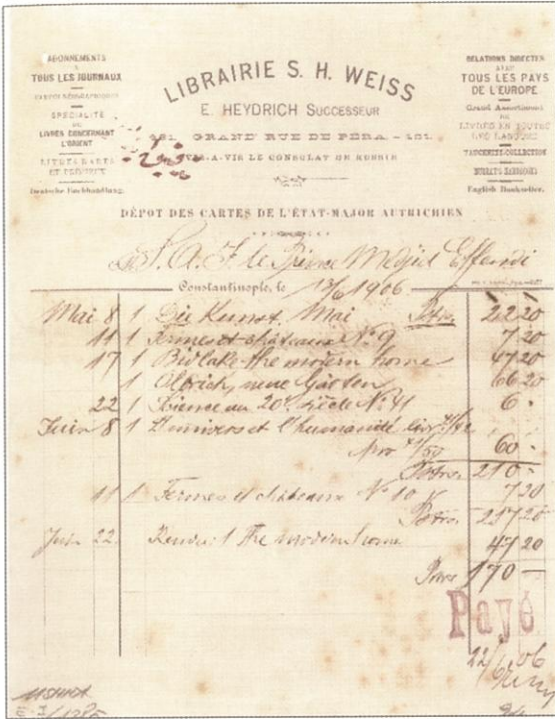 ABONNEMENTS
A
TOUS LES JOURNAUX
SPÉCIALITÉ
DE
LIVRES CONCERNANT
L'ORIENT
Deutsche Buchhandlung.
LIBRAIRIE S. H. WEISS
E. HEYDRICH SUCCESSEUR
GRAND' RUE DE PÉRA
VIS-A-VIS LE CONSULAT DE RUSSIE
RELATIONS DIRECTES
AVEC
TOUS LES PAYS
DE L'EUROPE
Grand Assortiment
DE
LIVRES EN TOUTES
LES LANGUES
TAUCHNITZ-COLLECTION
English Bookseller.
DÉPOT DES CARTES DE L'ÉTAT-MAJOR AUTRICHIEN
S. A. I. le Prince Medjid Effendi
Constantinople, le 13/6 1906
Mai 8 1 Die Kunst, Mai Ptrs. 22 20
11 1 Fermes et châteaux No 9 7 20
17 1 Bidlake the modern home 47 20
1 Olbrich, neue Gärten 66 20
22 1 au 20e siècle No 41 6 -
Juin 8 1 L'univers et l'humanité livr 41/42
60 -
Ptrs. 210 -
11 1 Fermes et châteaux No 10 7 20
Ptrs. 217 20
Juin 22 Rendu 1 The modern home 47 20
170 -
Payé
22/6 06